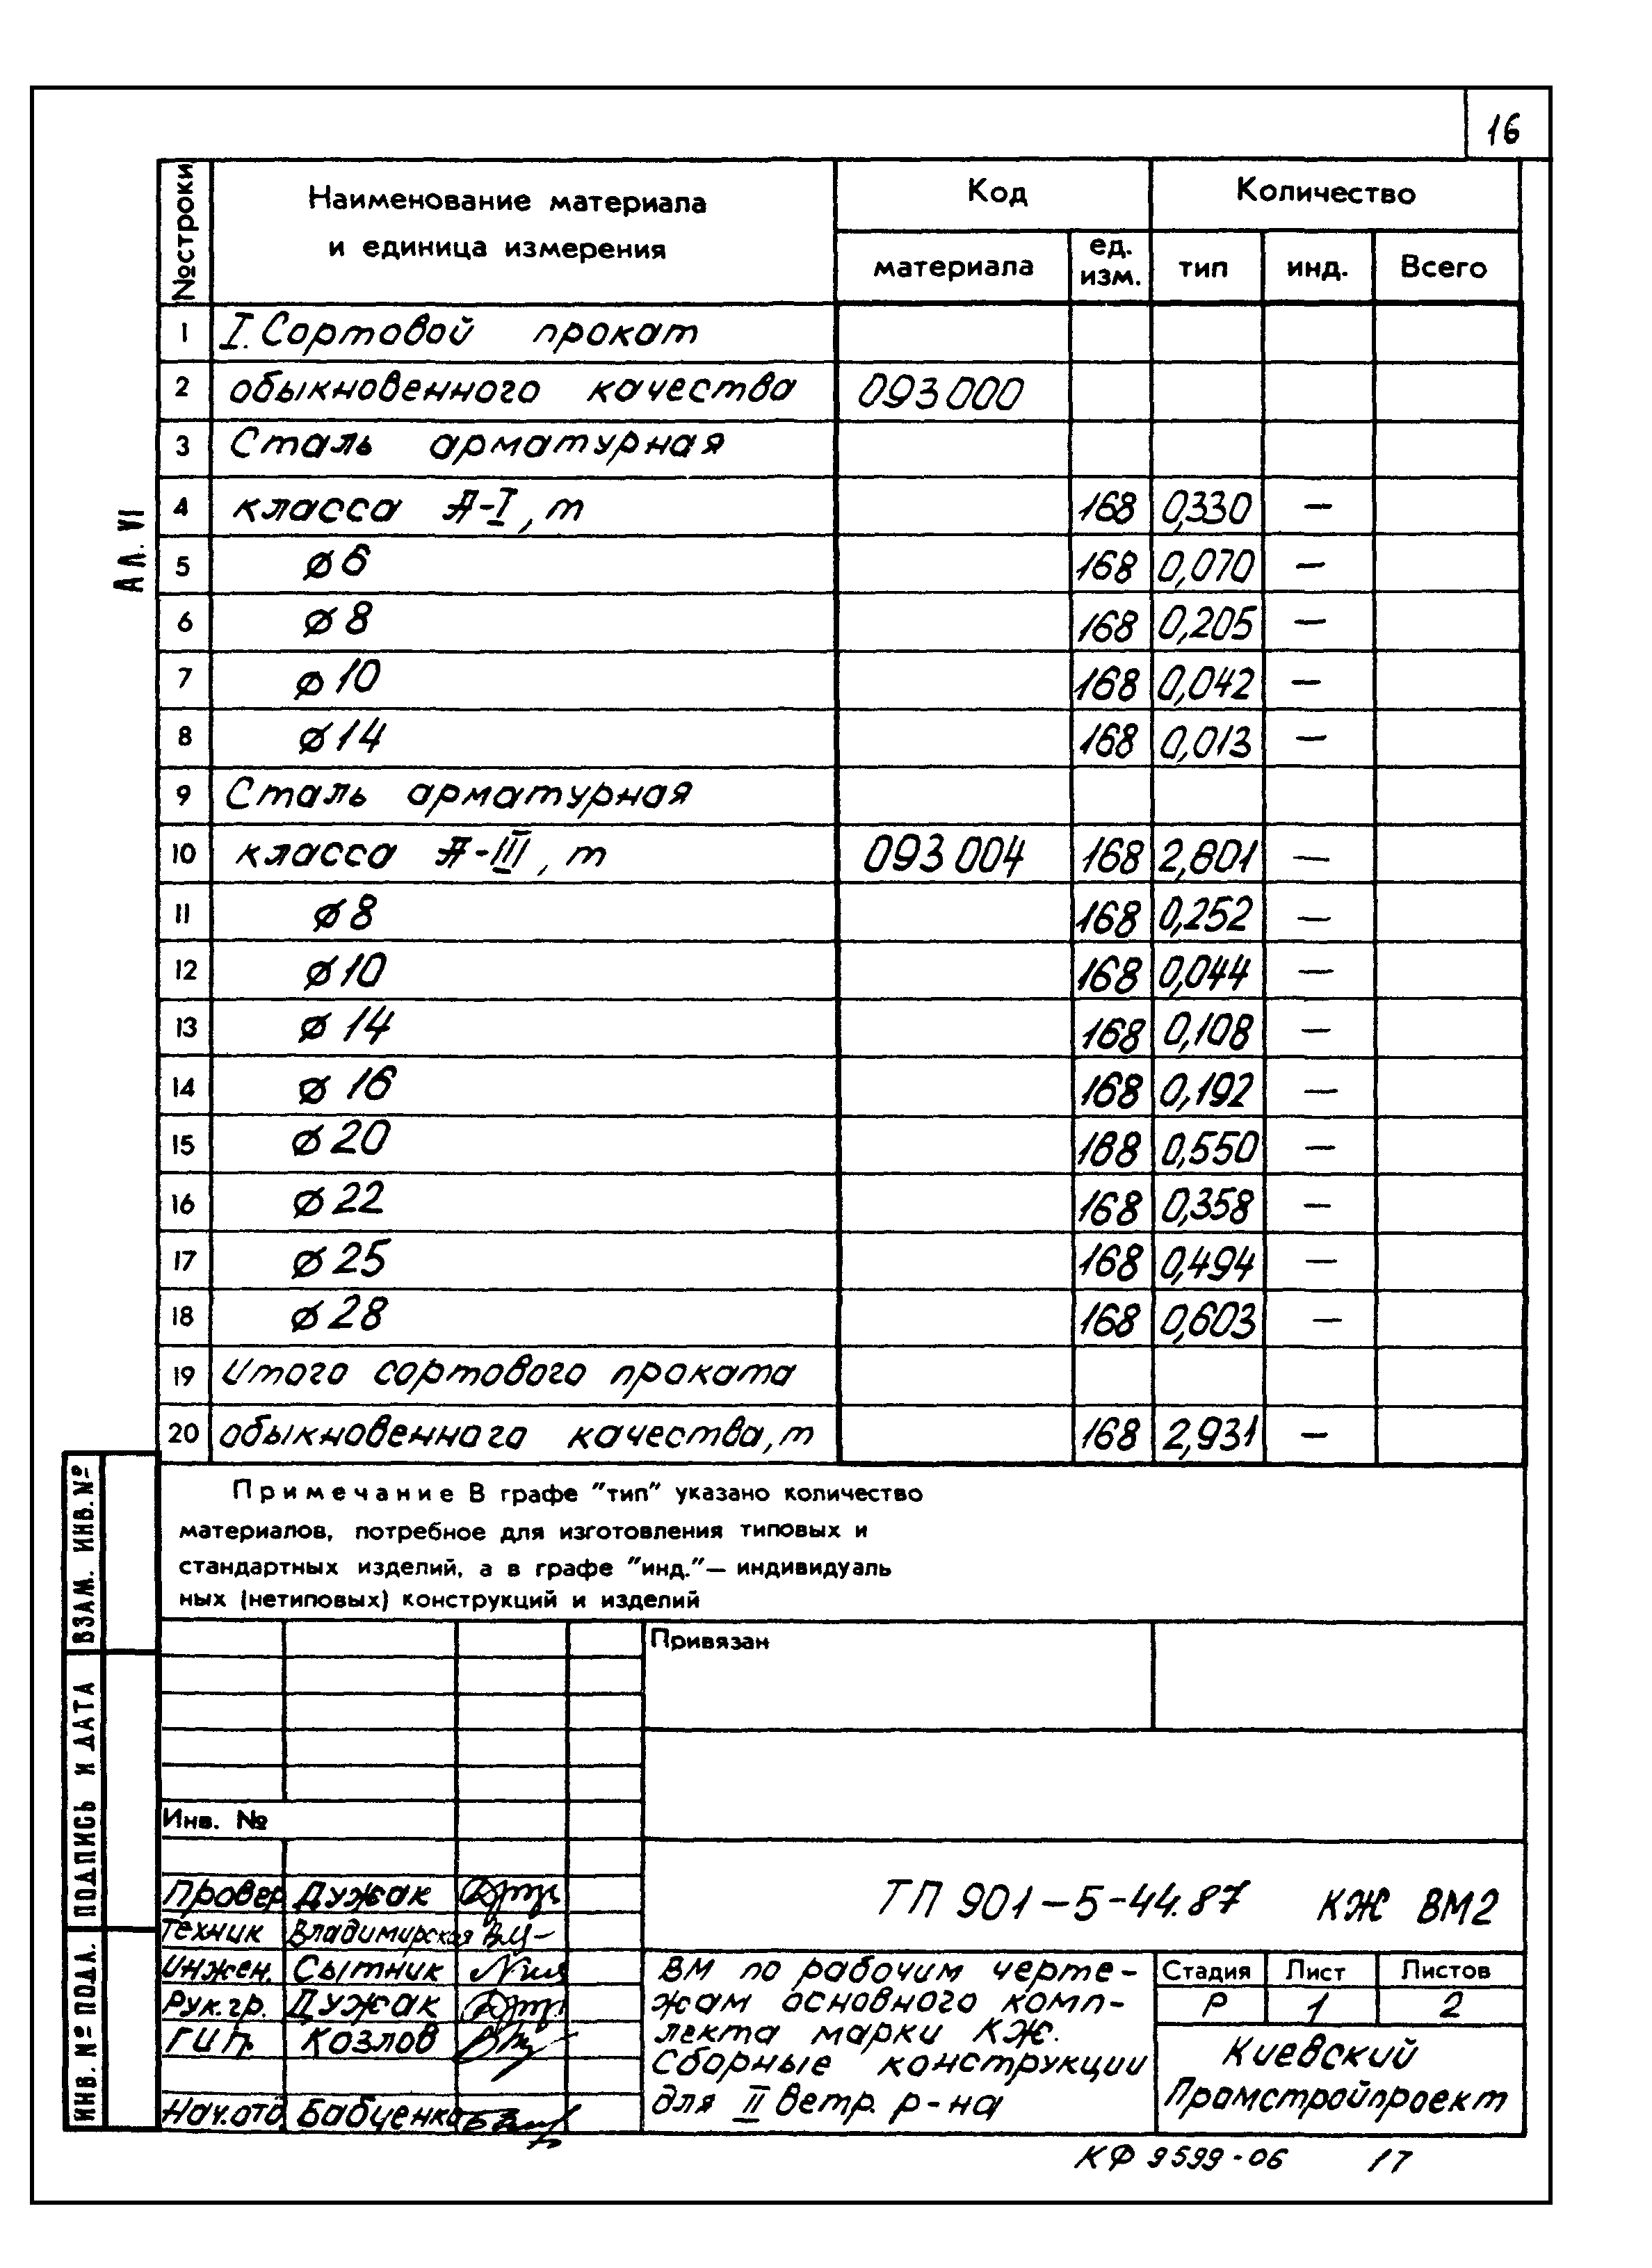 16
№ строки Наименование материала и единица измерения Код Количество
материала ед. изм. тип инд. Всего
1 I. Сортовой прокат
2 обыкновенного качества 093000
3 Сталь арматурная
4 класса А-I, т 168 0,330 —
5 ⌀6 168 0,070 —
6 ⌀8 168 0,205 —
7 ⌀10 168 0,042 —
8 ⌀14 168 0,013 —
9 Сталь арматурная
10 класса А-III, т 093004 168 2,601 —
11 ⌀8 168 0,252 —
12 ⌀10 168 0,044 —
13 ⌀14 168 0,108 —
14 ⌀16 168 0,192 —
15 ⌀20 168 0,550 —
16 ⌀22 168 0,358 —
17 ⌀25 168 0,494 —
18 ⌀28 168 0,603 —
19 Итого сортового проката
20 обыкновенного качества, т 168 2,931 —
АЛ. VI
Примечание В графе "тип" указано количество
материалов, потребное для изготовления типовых и
стандартных изделий, а в графе "инд."— индивидуаль
ных (нетиповых) конструкций и изделий
Привязан
Инв. №
ВЗАМ. ИНВ. №
ПОДПИСЬ И ДАТА
ИНВ. № ПОДЛ.
Провер Дужак
Техник Владимирская
Инжен. Сытник
Рук. гр. Дужак
ГИП. Козлов
Нач. отд. Бабченко
ТП 901-5-44.87 КЖ ВМ2
ВМ по рабочим черте-
жам основного комп-
лекта марки КЖ.
Сборные конструкции
для II ветр. р-на
Стадия Лист Листов
Р 1 2
Киевский
Промстройпроект
КФ 9599-06 17